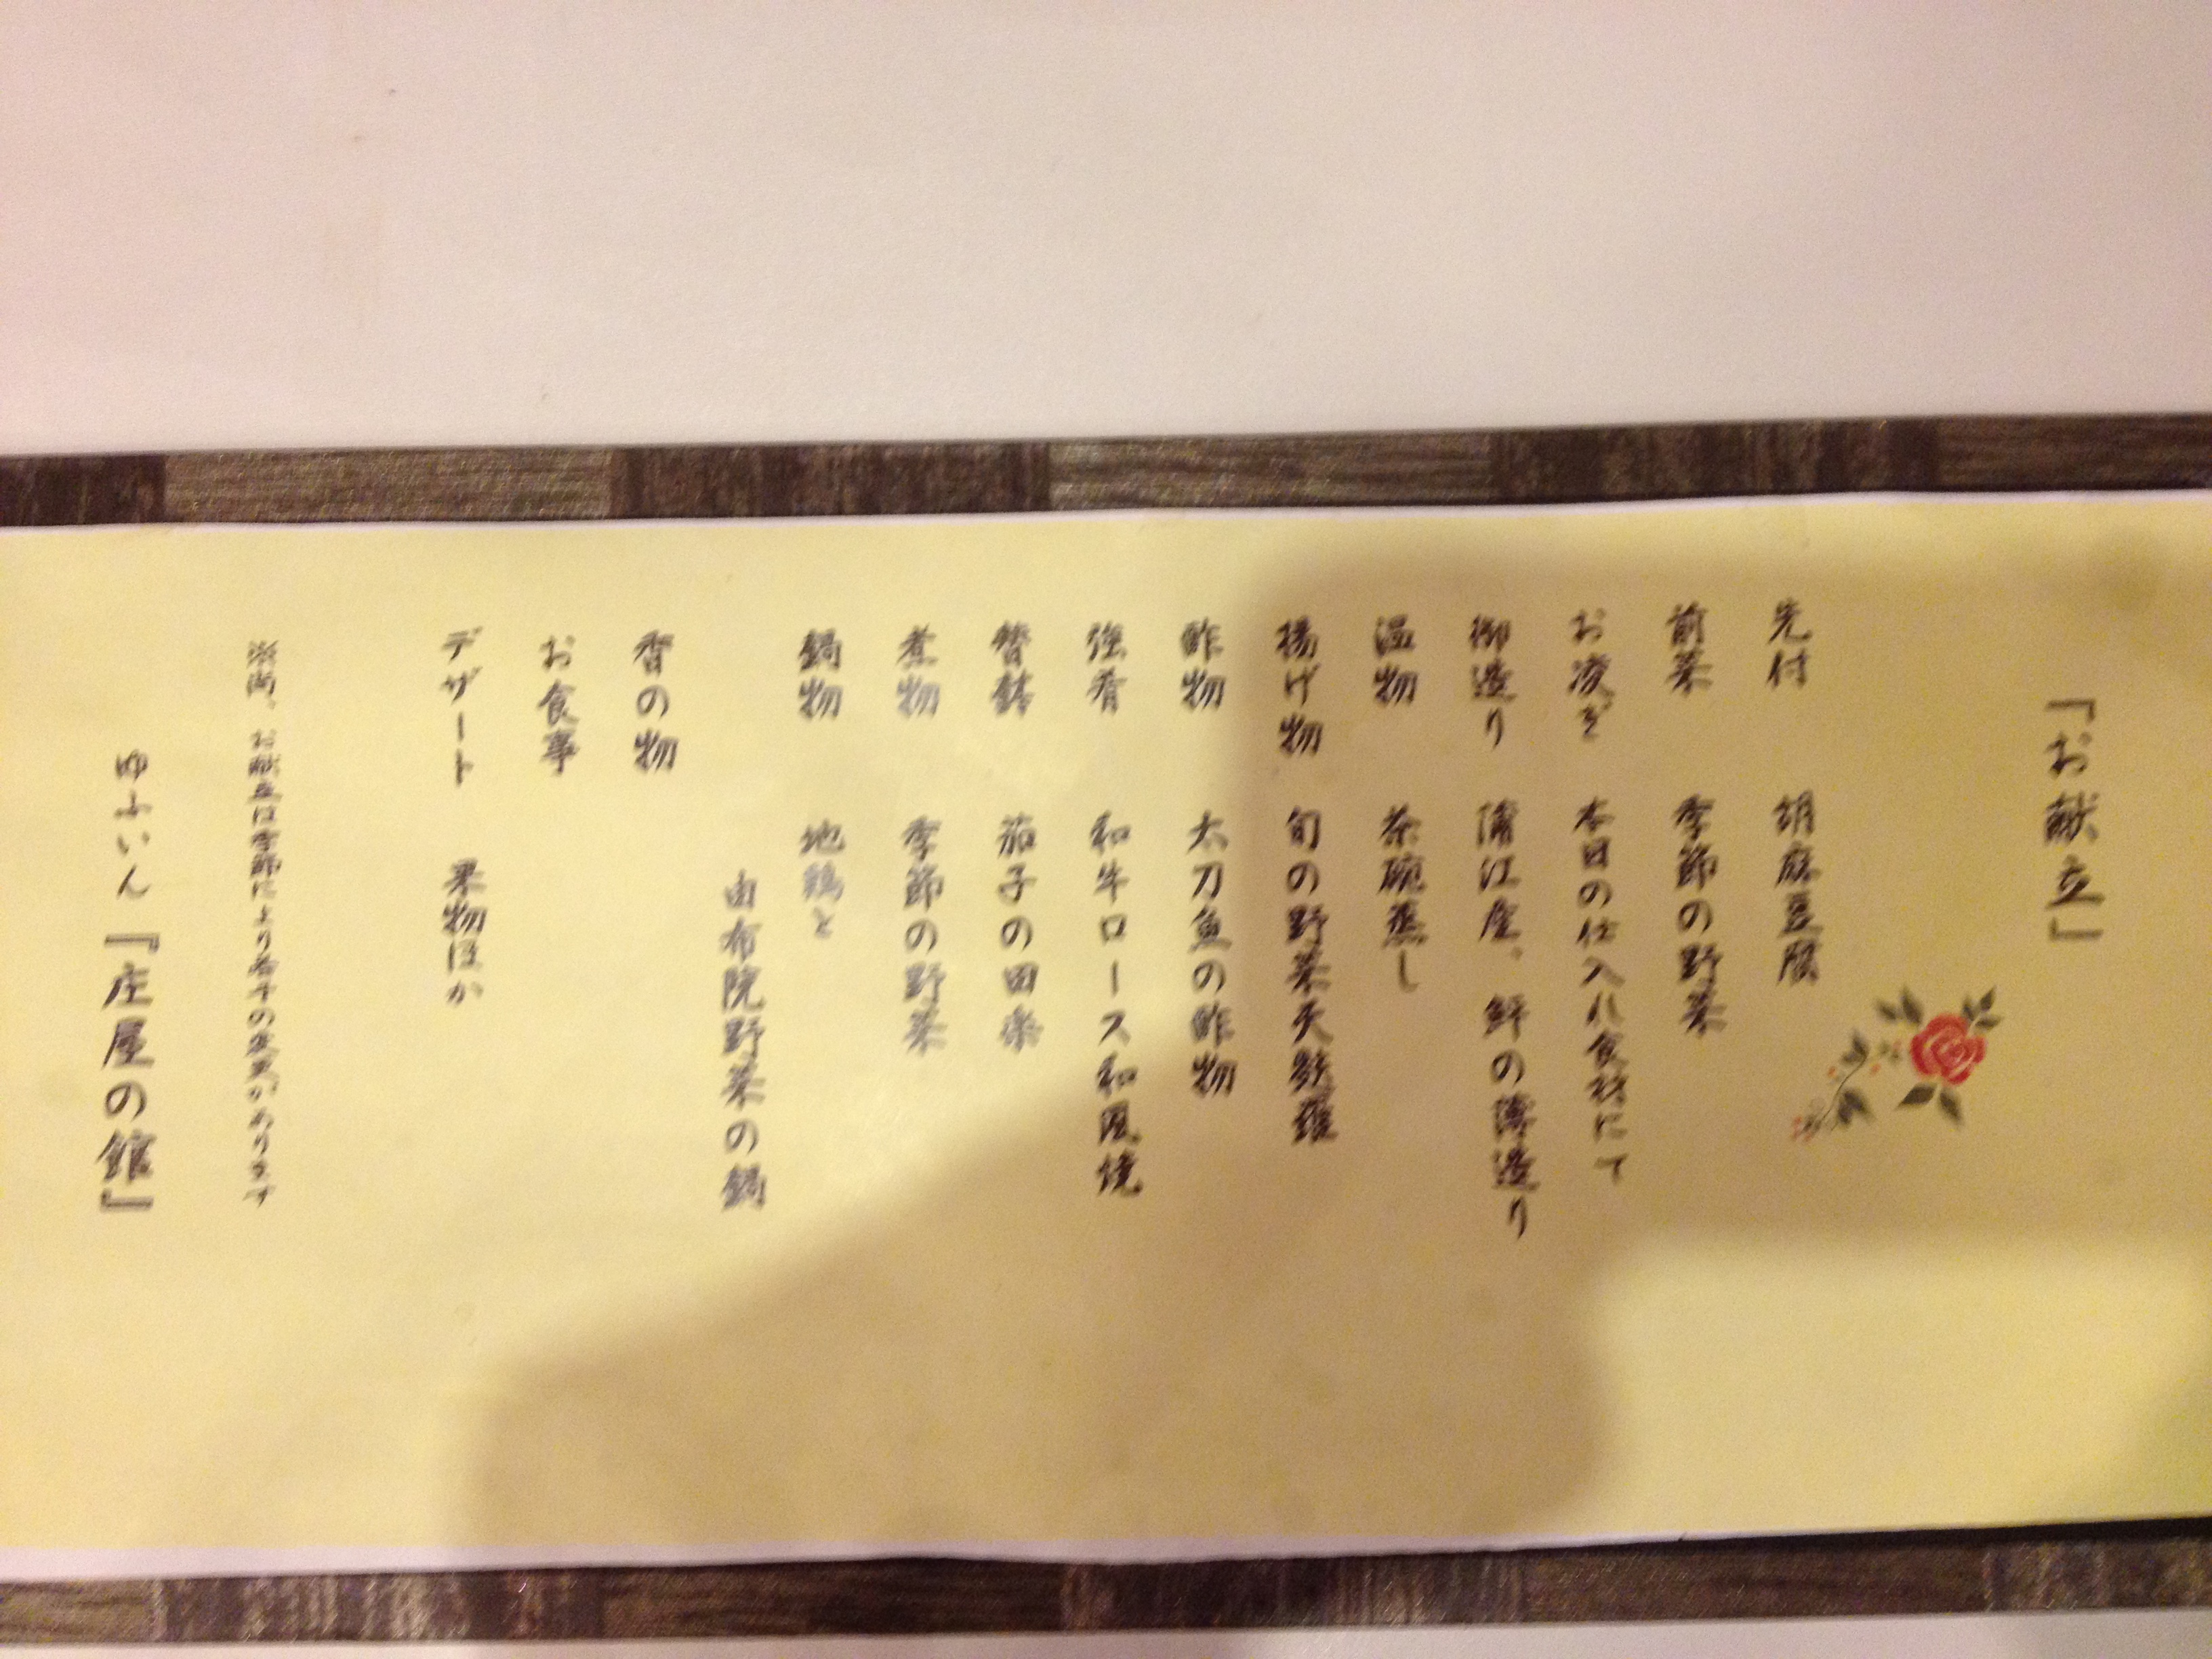 「お献立」
先付 胡麻豆腐
前菜 季節の野菜
お凌ぎ 本日の仕入れ食材にて
御造り 蒲江産、鮮の薄造り
温物 茶碗蒸し
揚げ物 旬の野菜天麩羅
酢物 太刀魚の酢物
強肴 和牛ロース和風焼
替鉢 茄子の田楽
煮物 季節の野菜
鍋物 地鶏と
由布院野菜の鍋
香の物
お食事
デザート 果物ほか
※尚、お献立は季節により若干の変更があります
ゆふいん『庄屋の館』